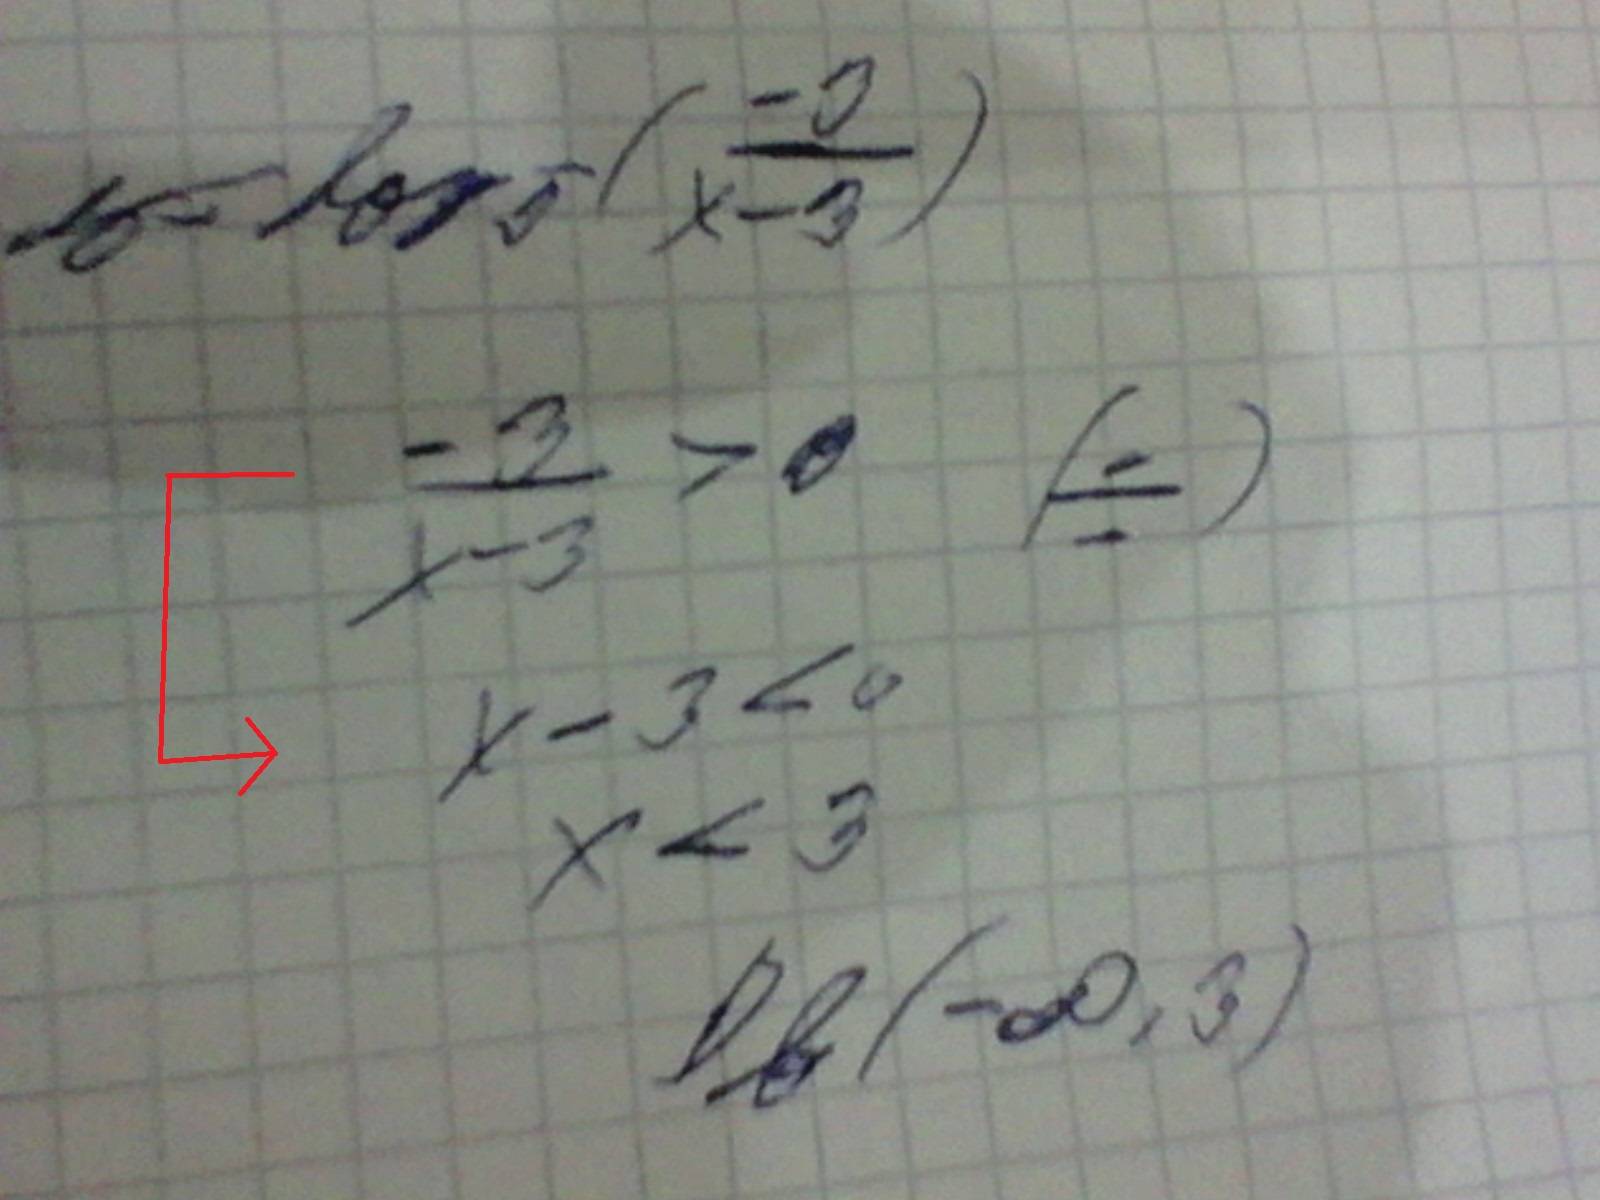 y = log₅ ( -3 / x-3 )
-3 / x-3 > 0 ( - / - )
x - 3 < 0
x < 3
Df (-∞, 3)